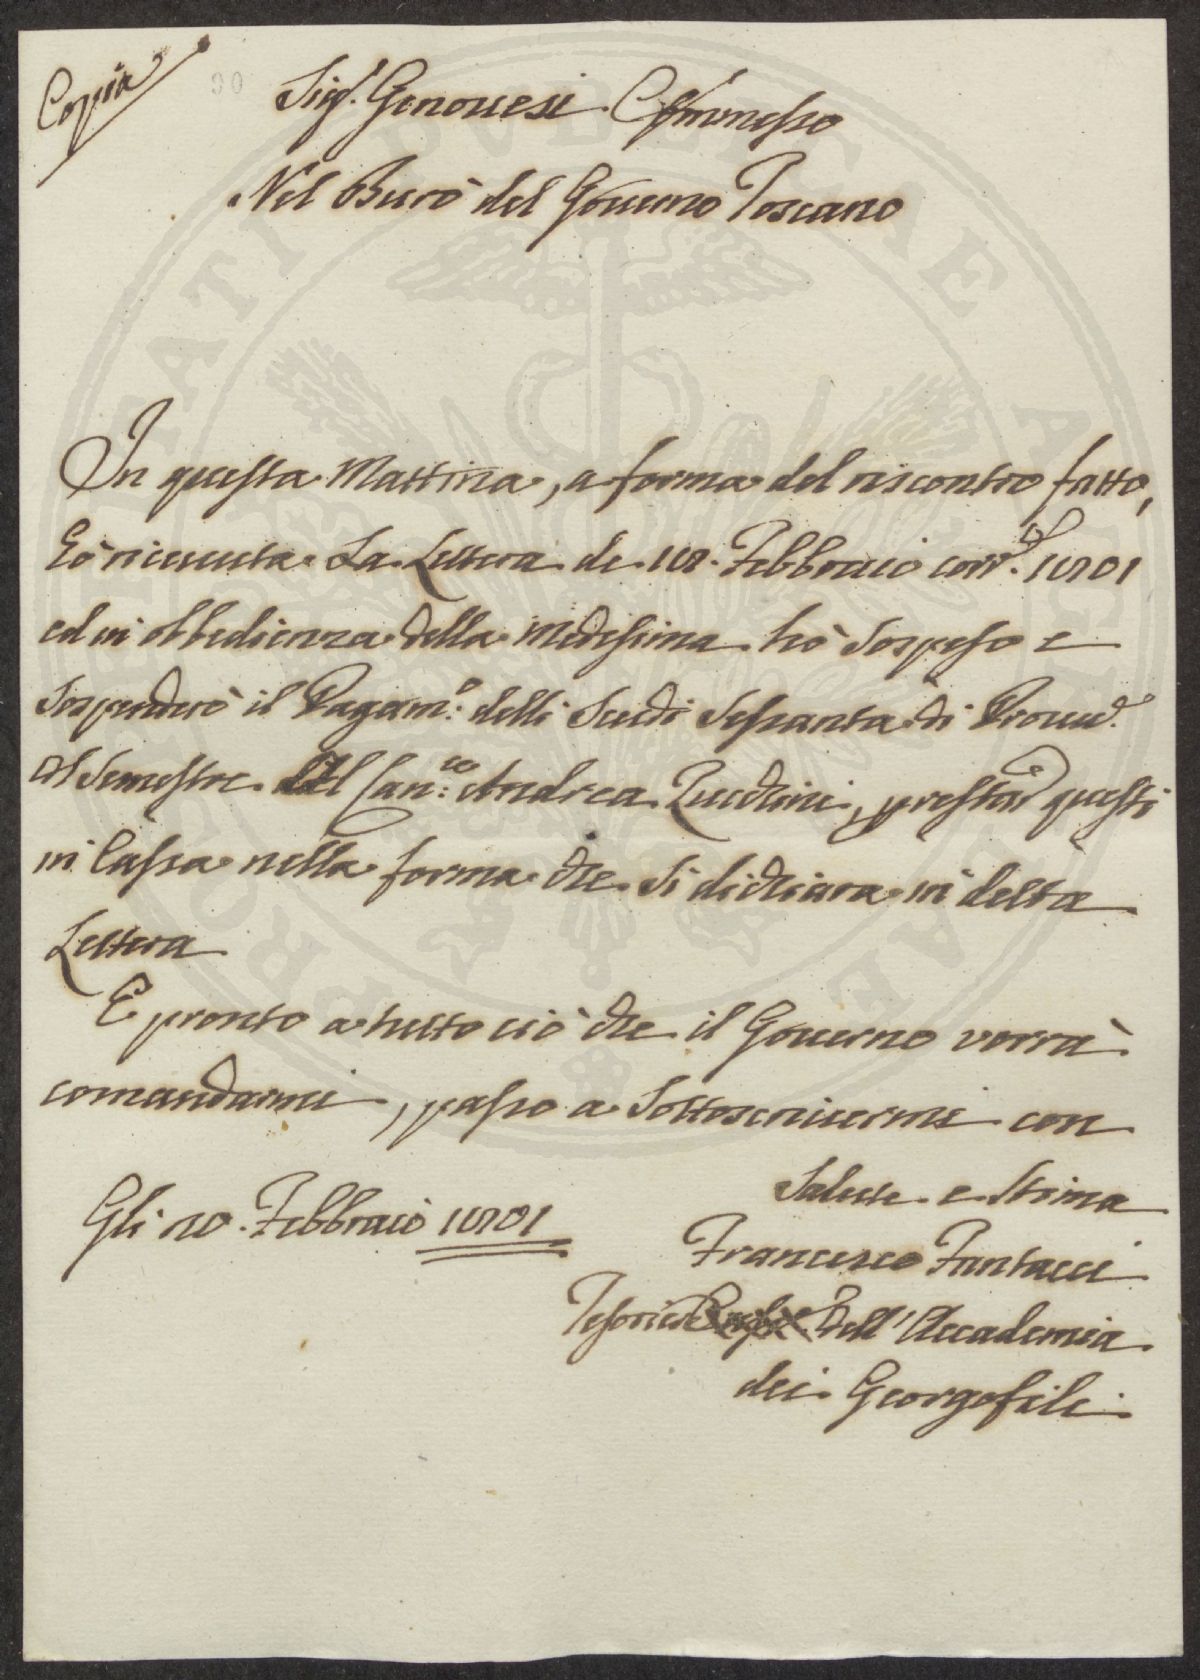 Copia
90
Sig.r Genouesi Commesso
Nel Burò del Gouerno Toscano
In questa Mattina, a forma del riscontro fatto,
hò riceuuta La Lettera de 18. Febbraio corr.te 1801
ed in obbedienza della medesima hò Sospeso e
Sospenderò il Pagam.o delli Scudi Sessanta di Prouu.e
al Semestre del Can.co Andrea Zucchini, prestati questi
in Cassa nella forma che si dichiara in detta
Lettera
E pronto a tutto ciò che il Gouerno vorrà
comandarmi, passo a Sottoscriuermi con
Salute e Stima
Gli 20. Febbraio 1801
Francesco Fantacci
Tesoriere Dell'Accademia
dei Georgofili
PROSPERITATI PUBLICAE AUGENDAE